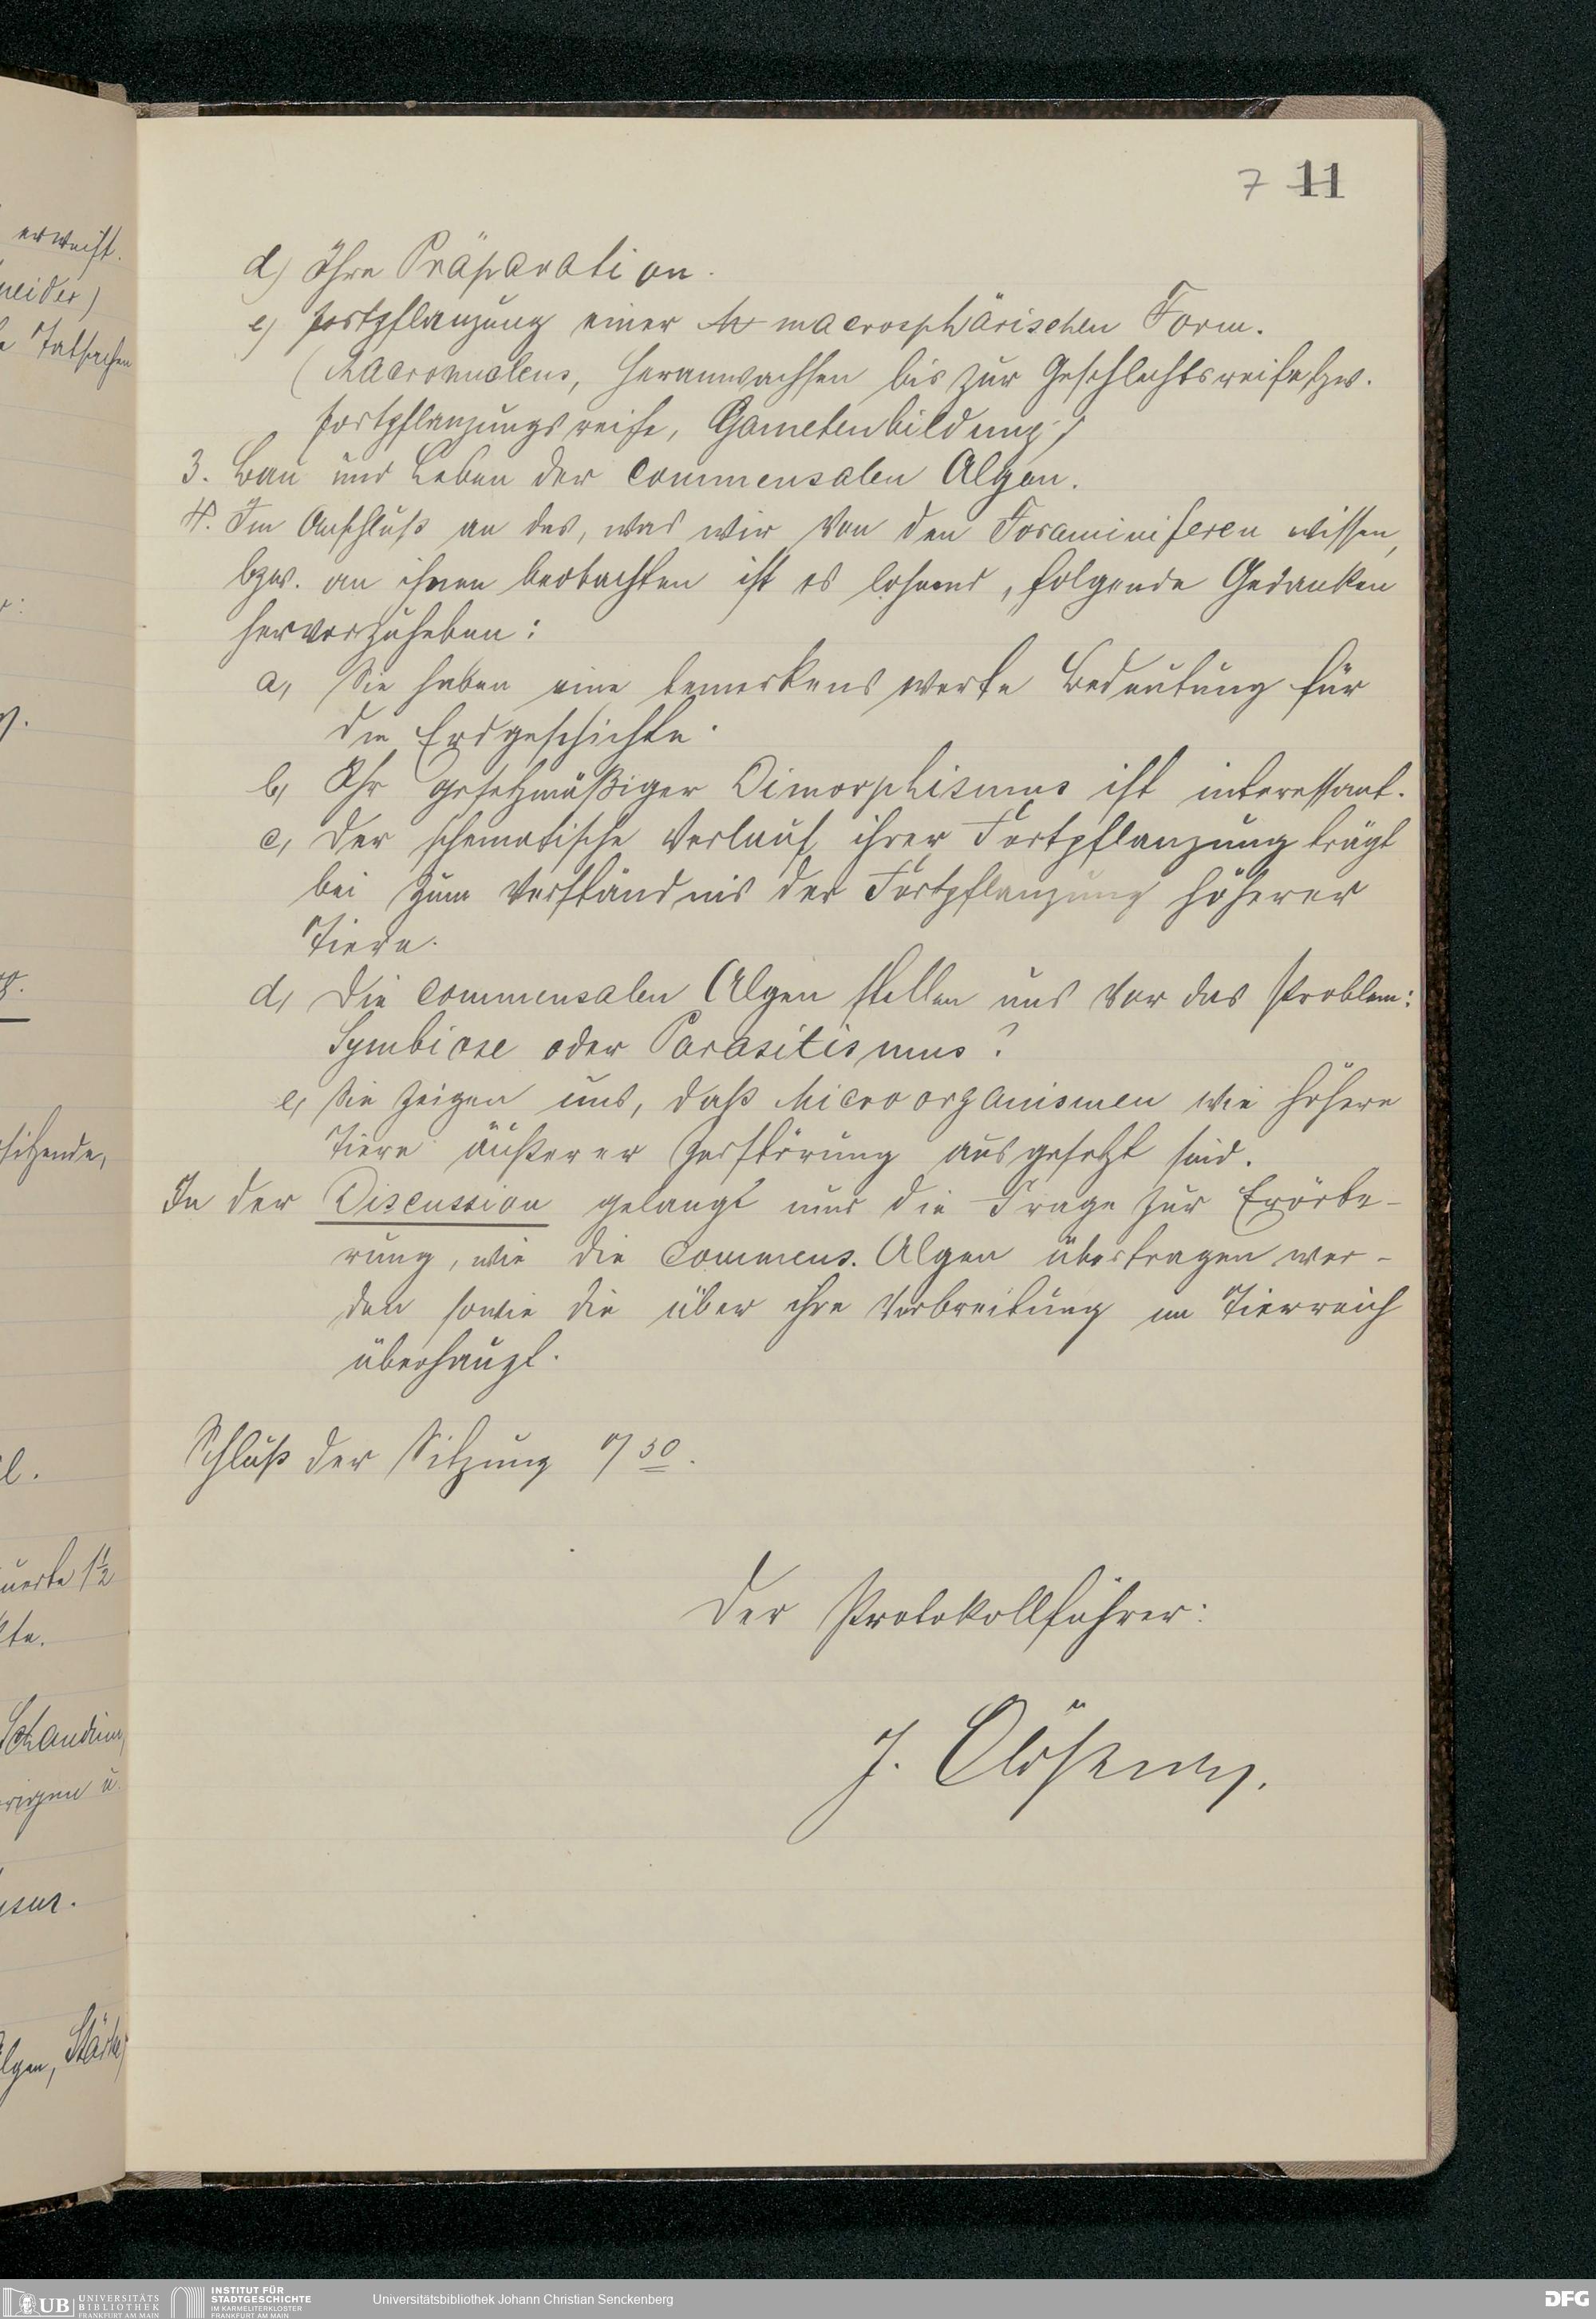 7 11
d) Ihre Präparation.
e) Fortpflanzung einer macrosphärischen Form.
(Macronucleus, Heranwachsen bis zur Geschlechtsreife bzw.
Fortpflanzungsreife, Gametenbildung.)
3. Bau und Leben der commensalen Algen.
4. Im Anschluß an das, was wir von den Foraminiferen wissen,
bzw. an ihnen beobachten ist es lohnend, folgende Gedanken
hervorzuheben:
a, Sie haben eine bemerkenswerte Bedeutung für
die Erdgeschichte.
b, Ihr gesetzmäßiger Dimorphismus ist interessant.
c, Der schematische Verlauf ihrer Fortpflanzung trägt
bei zum Verständnis der Fortpflanzung höherer
Tiere.
d, Die commensalen Algen stellen uns vor das Problem:
Symbiose oder Parasitismus?
e, Sie zeigen uns, daß Microorganismen wie höhere
Tiere äußerer Zerstörung ausgesetzt sind.
In der Discussion gelangt nur die Frage zur Erörte-
rung, wie die commens. Algen übertragen wer-
den sowie die über ihre Verbreitung im Tierreich
überhaupt.
Schluß der Sitzung 7 30.
Der Protokollführer:
J.
erweist.
neider)
Tatsachen
sitzende,
uerte 1½
kte.
Schaudinn,
rigen u.
lgen, Stärke
UB UNIVERSITÄTS BIBLIOTHEK FRANKFURT AM MAIN
INSTITUT FÜR STADTGESCHICHTE IM KARMELITERKLOSTER FRANKFURT AM MAIN
Universitätsbibliothek Johann Christian Senckenberg
DFG